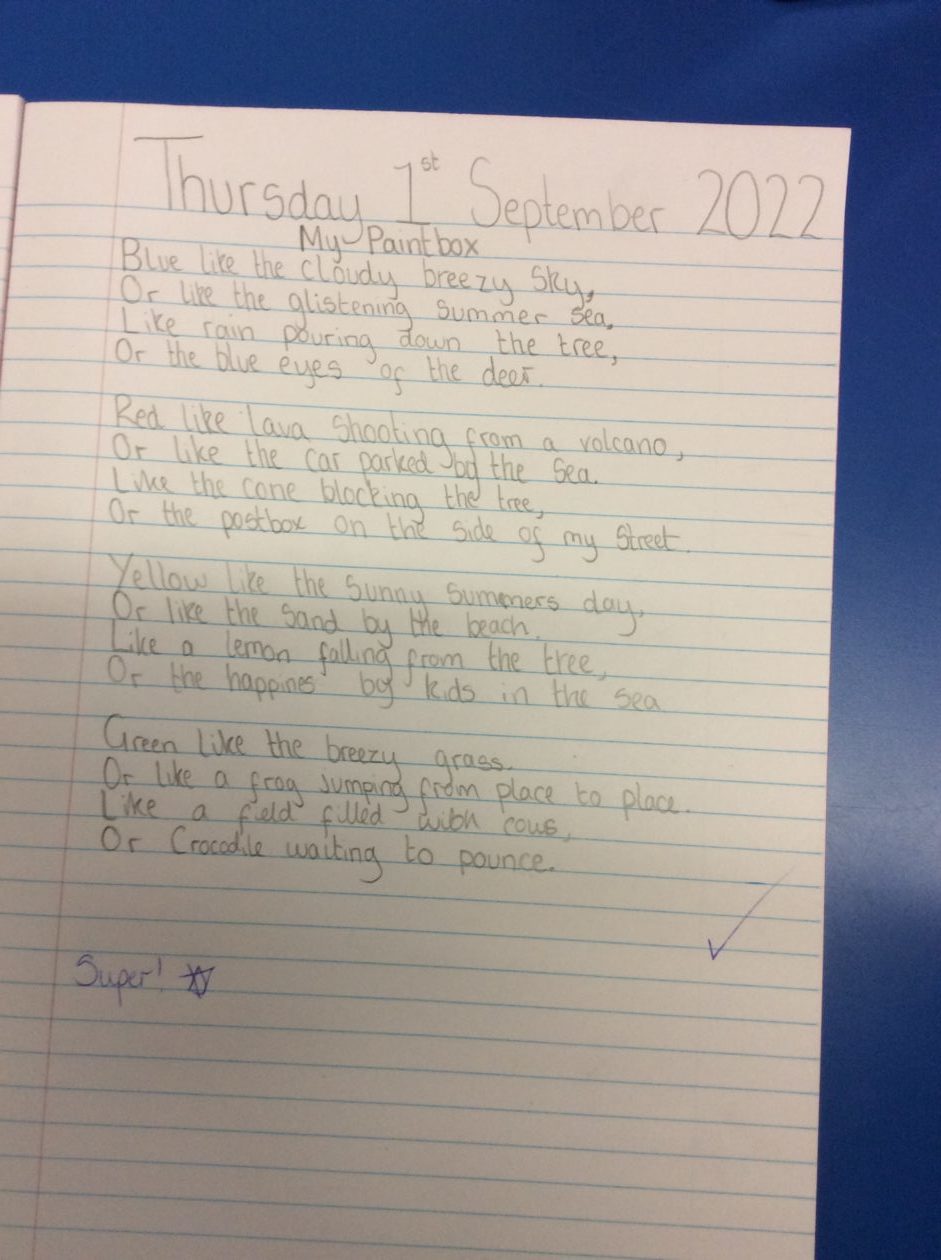 Thursday 1st September 2022
My Paintbox
Blue like the cloudy breezy Sky,
Or like the glistening summer sea.
Like rain pouring down the tree,
Or the blue eyes of the deer.
Red like lava shooting from a volcano,
Or like the car parked by the sea.
Like the cone blocking the tree,
Or the postbox on the side of my Street.
Yellow like the sunny summers day,
Or like the sand by the beach.
Like a lemon falling from the tree,
Or the happines by kids in the sea
Green like the breezy grass.
Or like a frog jumping from place to place.
Like a field filled with cows,
Or Crocodile waiting to pounce.
Super!